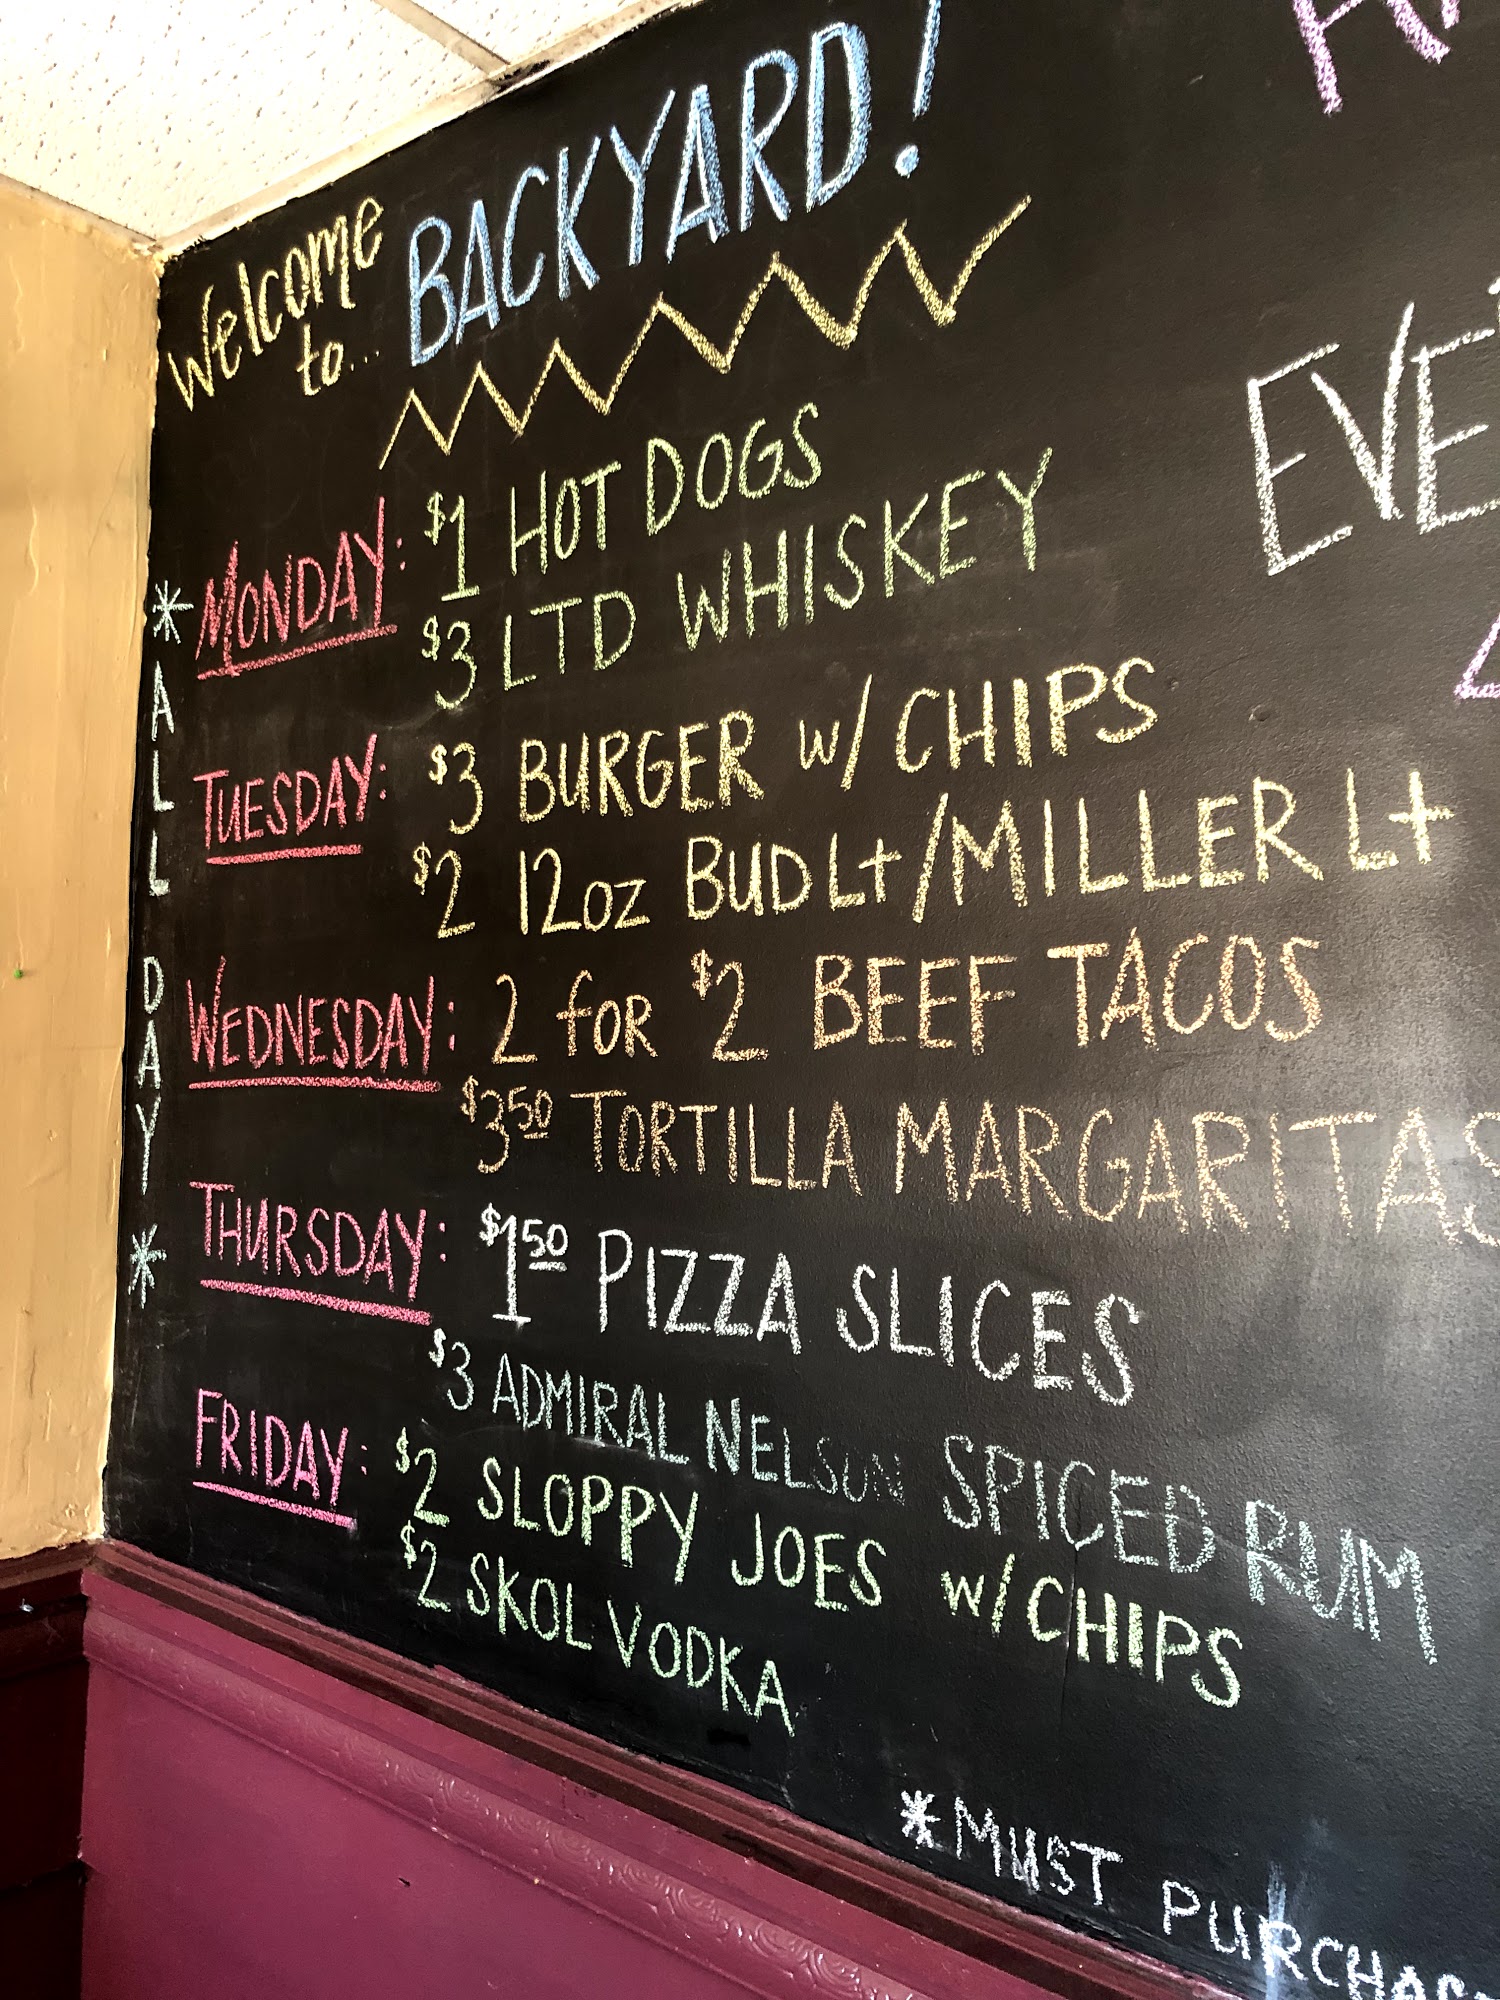 Welcome
to... BACKYARD!
* ALL DAY *
MONDAY: $1 HOT DOGS
$3 LTD WHISKEY
TUESDAY: $3 BURGER w/ CHIPS
$2 12oz BUD Lt/MILLER Lt
WEDNESDAY: 2 for $2 BEEF TACOS
$3.50 TORTILLA MARGARITAS
THURSDAY: $1.50 PIZZA SLICES
$3 ADMIRAL NELSON SPICED RUM
FRIDAY: $2 SLOPPY JOES w/CHIPS
$2 SKOL VODKA
*MUST PURCHASE